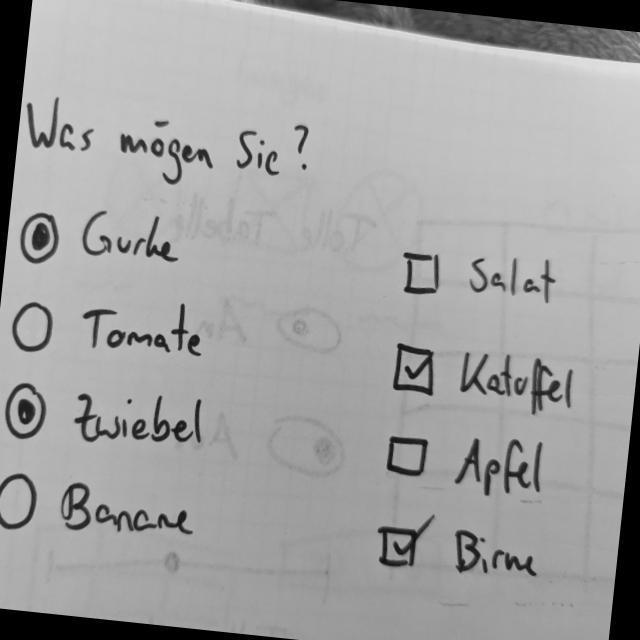 Was mögen Sie?
Gurke
Tomate
Zwiebel
Banane
Salat
Katoffel
Apfel
Birne